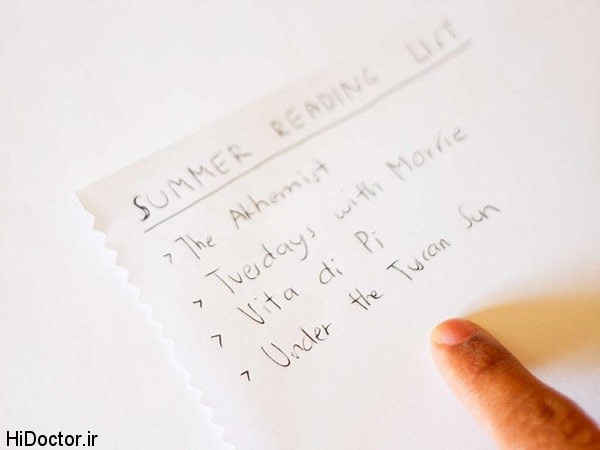 SUMMER READING LIST
> The Alchemist
> Tuesdays with Morrie
> Vita di Pi
> Under the Tuscan Sun
HiDoctor.ir